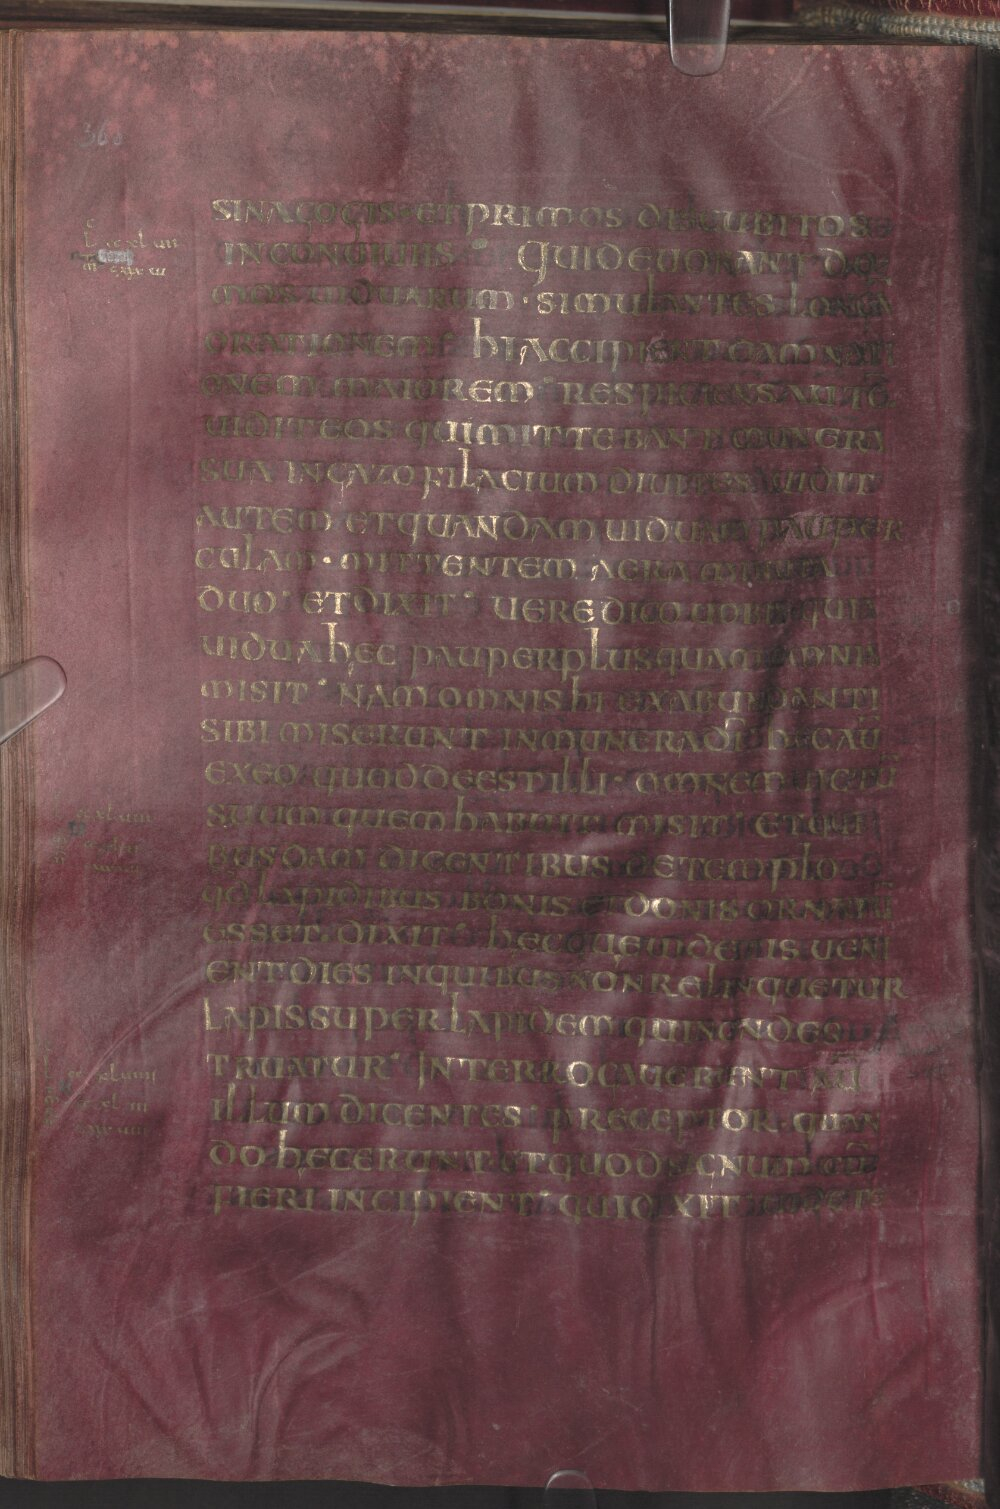 360
SINAGOGIS ET PRIMOS DISCUBITOS
IN CONUIUIIS QUI DEUORANT DO
MOS UIDUARUM · SIMULANTES LONGA
ORATIONEM HI ACCIPIENT DAMNATI
ONEM MAIOREM RESPICIENS AUTE
UIDIT EOS QUI MITTEBANT MUNERA
SUA IN GAZOFILACIUM DIUITES UIDIT
AUTEM ET QUANDAM UIDUAM PAUPER
CULAM · MITTENTEM AERA MINUTA
DUO ET DIXIT UERE DICO UOBIS QUIA
UIDUA HEC PAUPER PLUS QUAM OMNIS
MISIT NAM OMNIS HI EX ABUNDANTI
SIBI MISERUNT IN MUNERA DĪ HEC AŪ
EX EO QUOD DEEST ILLI · OMNEM UICTŪ
SUUM QUEM HABUIT MISIT ET QUI
BUSDAM DICENTIBUS DE TEMPLO
QD LAPIDIBUS BONIS ET DONIS ORNATŪ
ESSET DIXIT HEC QUE UIDETIS UENI
ENT DIES IN QUIBUS NON RELINQUETUR
LAPIS SUPER LAPIDEM QUI NON DES
TRUATUR INTERROGAUERUNT AŪ
ILLUM DICENTES PRECEPTOR QUAN
DO HEC ERUNT ET QUOD SIGNUM CŪ
FIERI INCIPIENT QUI DIXIT UIDETE